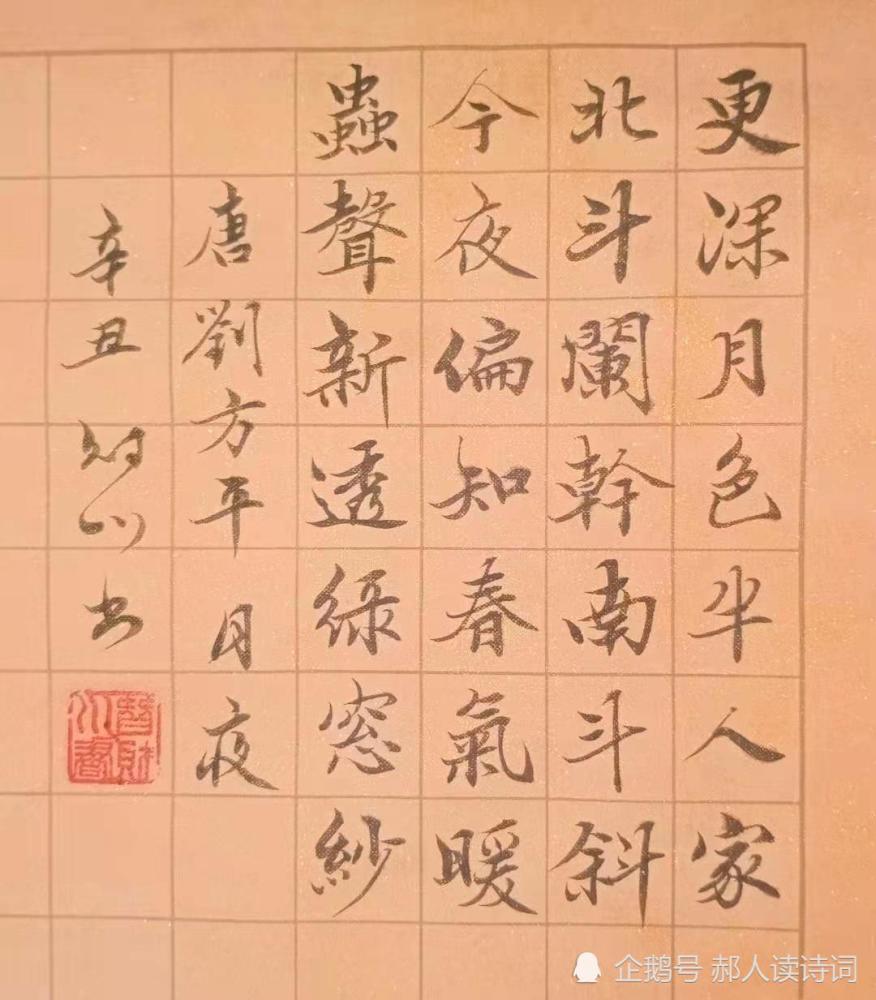 更深月色半人家
北斗闌幹南斗斜
今夜偏知春氣暖
蟲聲新透綠窓紗
唐劉方平月夜
辛丑財川書
企鹅号 郝人读诗词